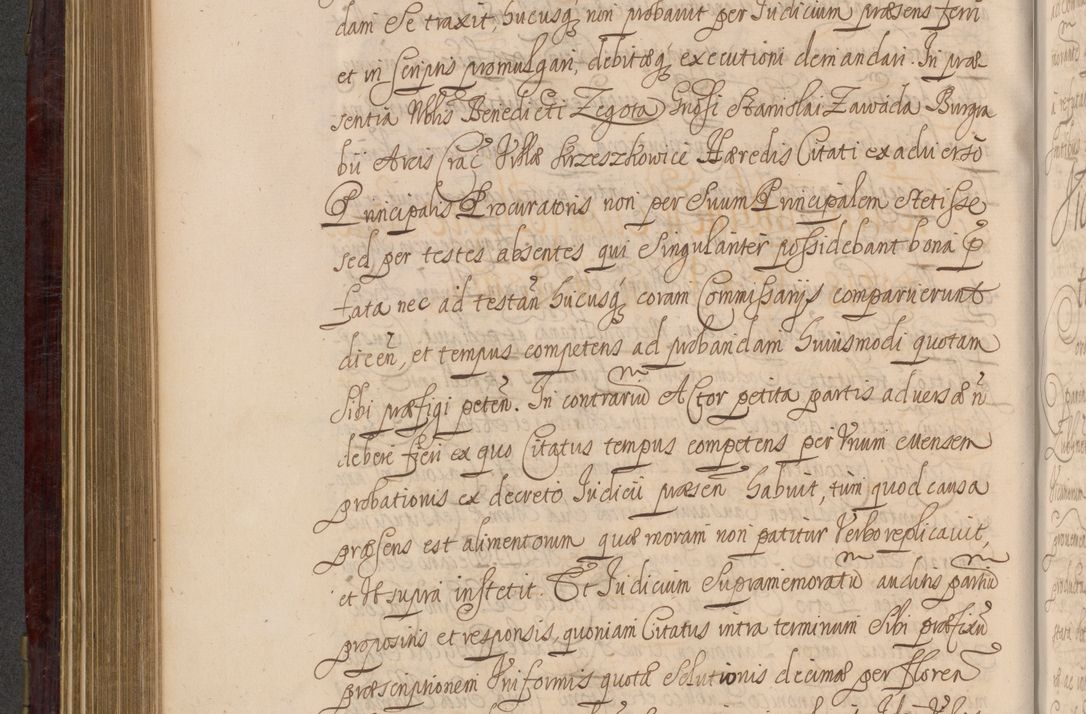 dam se traxit, hucusq; non probavit per Iudicium præsens ferri
et in scriptis promulgari, debitæq; executioni demandari. In præ
sentia Nblis Benedicti Zegota Gnosi Stanislai Zawada Burgra
bii Arcis Crac Villæ Krzeszkowice Hæredis Citati ex adverso
Principalis Procuratoris non per suum Principalem stetisse
sed per testes absentes qui singulariter possidebant bona p
fata nec ad testan hucusq; coram Commissarijs comparuerunt
dicen, et tempus competens ad probandam huiusmodi quotam
sibi præfigi peten. In contrariu m Actor petita partis adversæ n
debere fieri ex quo Citatus tempus competens per Unum mensem
probationis ex decreto Iudicii præsen habuit, tum quod causa
præsens est alimentorum quæ moram non patitur Verbo replicavit,
et Ut supra institit. Et Iudicium supramemoratu m auditis partiu m
propositis et responsis, quoniam Citatus intra terminum sibi præfixu
præscriptionem Uniformis quotæ solutionis decimæ per floren